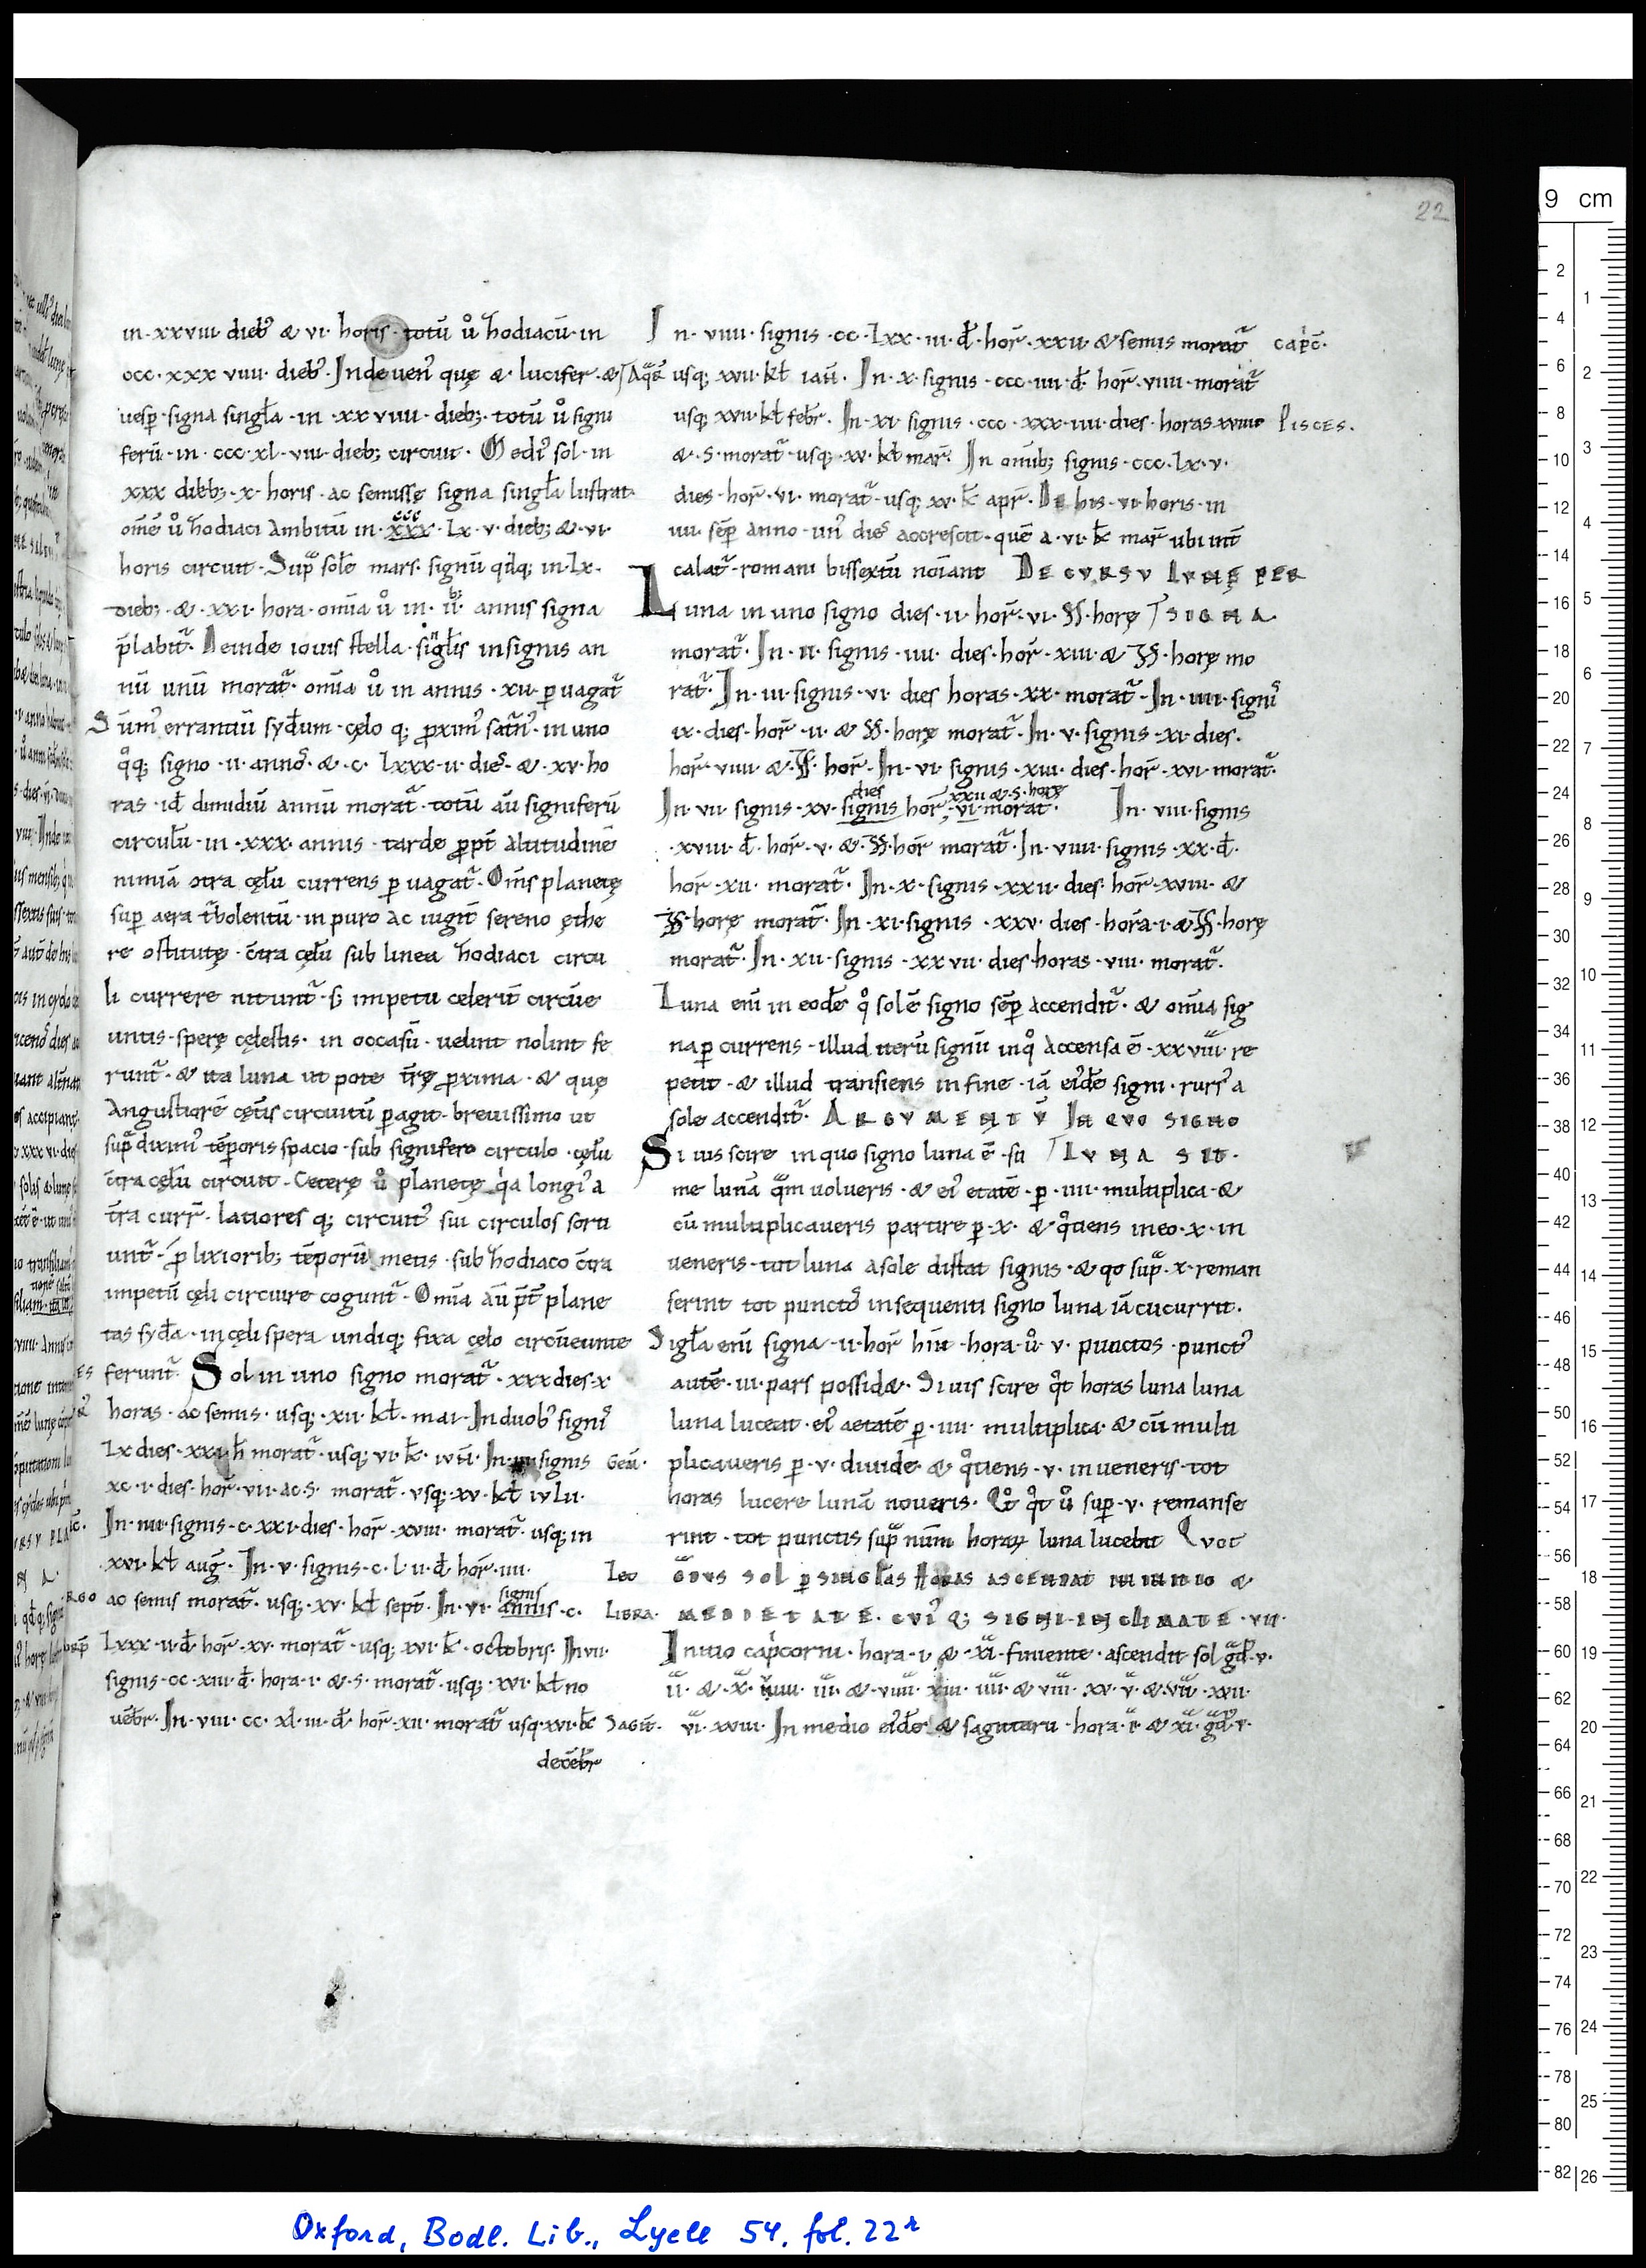 22
in · xxviii dieb᷒ & vi · horis · totū ů hodiacū · in
ccc · xxx viiii · dieb᷒ · Inde uen᷒ quę & · lucifer · &
uesp̄ · signa singl̄a · in · xx viiii · dieb; · totū ů signi
ferū · in · ccc · xl · viii · dieb; circuit · Medi᷒ sol · in
xxx dieb; · x · horis · ac semissę signa singl̄a lustrat ·
om̄e ů hodiaci ambitū in · xxx · lx · v · dieb; & · vi ·
ccc
horis circuit · Sup̄ solē mars · signū qdq; in · lx ·
dieb; · & · xxi · hora · om̄ia ů in · ii · annis signa
p̄labit᷑ · Deinde iouis stella · singl̄is in signis an
nū unū morat᷑ · om̄ia ů in annis · xii · p̱ uagat᷑
Sūm᷒ errantiū syd̄um · cęlo q; p̱xim᷒ satn᷒ · in uno
q̊q; signo · ii · anno᷒s · & · c · lxxx · ii · die᷒s · & · xv · ho
ras · id̄ dimidiū annū morat᷑ · totū aū signiferū
circulū · in · xxx · annis · tarde p̱pt̄ altitudinē
nimiā ɔtra cęlū currens p̱ uagat᷑ · Om̄s planetę
sup̄ aera t᷑bolentū · in puro ac iugit̄ sereno ęthe
re ɔstitutę · ɔ̄tra cęlū sub linea hodiaci circu
li currere nitunt᷑ · s; impetu celerit̄ circūe
untis · sperę cęlestis · in occasū · uelint nolint fe
runt᷑ · & ita luna ut pote t̄rę p̱xima · & quę
angustiorē cęt̄is circuitū p̱agit · breuissimo ut
sup̄ diximus tēporis spacio · sub signifero circulo · cęlū
ɔ̄tra cęlū circuit · Ceterę ů planetę q̓a longi᷒ a
t̄ra curr̄ · latiores q; circuit᷒ sui circulos sorti
unt᷑ · p̱ lixiorib; tēporū metis · sub hodiaco ɔ̄tra
impetū cęli circuire cogunt᷑ · Om̄ia aū p̄t̄ plane
tas syd̄a · in cęli spera undiq; fixa cęlo circūeunte
ferunt᷑ Sol in uno signo morat᷑ · xxx dies · x
horas · ac semis · usq; · xii · kl̄ · mai · In duob᷒ signi᷒s
lx dies · xxi · h̄ morat᷑ · usq; vi · k̄ · iun̄ · In · iii signis
Gem̄ ·
xc · i · dies · hor̄ · vii · ac · s · morat᷑ · usq; · xv · kl̄ iulii ·
In · iiii · signis · c · xxi · dies · hor̄ · xviii · morat᷑ · usq; in
xvi · kl̄ auḡ · In · v · signis · c · l · ii · d̄ hor̄ · iiii ·
Leo
signis
ac semis morat᷑ · usq; · xv · kl̄ sept̄ · In · vi · annis · c ·
Libra ·
lxxx · ii · d̄ hor̄ · xv · morat᷑ · usq; xvi · k̄ · octobris · In vii ·
signis · cc · xiii · d̄ · hora · i · & · s · morat᷑ · usq; · xvi · kl̄ no
uēbr̄ · In · viii · cc · xl · iii · d̄ · hor̄ · xii · morat᷑ usq; · xvi · k̄
Sagit̄ ·
decēbr̄
In · viiii · signis · cc · lxx · iii · d̄ · hor̄ · xxii · & semis morat᷑
capc̄ ·
Aq̄s usq; xvii · kl̄ ian̄ · In · x · signis · ccc · iiii · d̄ · hor̄ · viiii · morat᷑
usq; xvii · kl̄ febr̄ · In · xi · signis · ccc · xxx · iiii · dies · horas xviiii
Pisces ·
& · s · morat᷑ · usq; · xv · kl̄ mar̄ · In om̄ib; signis · ccc · lx · v ·
dies · hor̄ · vi · morat᷑ · usq; xv · k̄ apr̄ · De his · vi · horis · in
iiii · sēp̄ anno · un᷒ die᷒s accrescit · quē a · vi · k̄ mar̄ ubi int̄
calat᷑ · romani bissextū noīant DE CVRSV LVNĘ PER
Luna in uno signo dies · ii · hor̄ · vi · horę SIGNA
morat᷑ · In · ii · signis · iiii · dies · hor̄ · xiii · & · horę mo
rat᷑ · In · iii · signis · vi · dies horas · xx · morat᷑ · In · iiii · signi᷒s
ix · dies · hor̄ · ii · & · horę morat᷑ · In · v · signis · xi · dies ·
hor̄ · viiii & · hor̄ · In · vi · signis · xiii · dies · hor̄ · xvi · morat᷑ ·
dies xxii & · s · horę
In · vii · signis · xv · signis hor̄ · vi · morat᷑ · In · viii · signis
· xviii · d̄ · hor̄ · v · & · hor̄ morat᷑ · In · viiii · signis · xx · d̄ ·
hor̄ · xii · morat᷑ · In · x · signis · xxii · dies · hor̄ · xviii · &
horę morat᷑ · In · xi · signis · xxv · dies · hora · i · & · horę
morat᷑ · In · xii · signis · xx vii · dies · horas · viii · morat᷑ ·
Luna enī in eodē q̊ solē signo sēp̄ accendit᷑ · & om̄ia sig
na p̱ currens · illud iterū signū in q̊ accensa ē · xx viiii · re
petit · & illud transiens in fine · iā ei᷒dē signi · rurs᷒ a
sole accendit᷑ · ARGVMENTV̄ IN QVO SIGNO
Si uis scire in quo signo luna ē · su LVNA SIT ·
me lunā q̄m uolueris · & ei᷒ etatē · p̱ · iiii · multiplica · &
cū multiplicaueris partire p̱ · x · & q̊tiens in eo · x · in
ueneris · tot luna a sole distat signis · & qo sup̄ · x · reman
serint tot puncto᷒s in sequenti signo luna iā cucurrit ·
Sigl̄a enī signa · ii · hor̄ hn̄t · hora · ů · v · punctos · punct᷒
autē · iii · pars possid& · Si uis scire q̊t horas luna luna
luna luceat · ei᷒ aetatē p̱ · iiii · multiplica · & cū multi
plicaueris p̱ · v · diuide · & q̊tiens · v · inueneris · tot
horas lucere lunā noueris · Et q̊t ů sup̄ · v · remanse
rint · tot punctis sup̄ num̄ horaꝝ luna lucebit QVOT
ḠDVS SOL P̱ SINGL̄AS HORAS ASCENDAT IN INITIO &
MEDIETATE · CVI᷒ Q; SIGNI · IN CLIMATE · VII ·
Initio cap̓corni · hora · i · & · xi · finiente · ascendit sol gd̄ · v ·
ii · & · x · viiii · iii · & · viiii · xiii · iiii · & viii · xv · v · & · vii · xvii ·
vi · xviii · In medio ei᷒dē & sagittarii · hora · i · & xi · gd̄ · v ·
Oxford, Bodl. Lib., Lyell 54, fol. 22r
9 cm